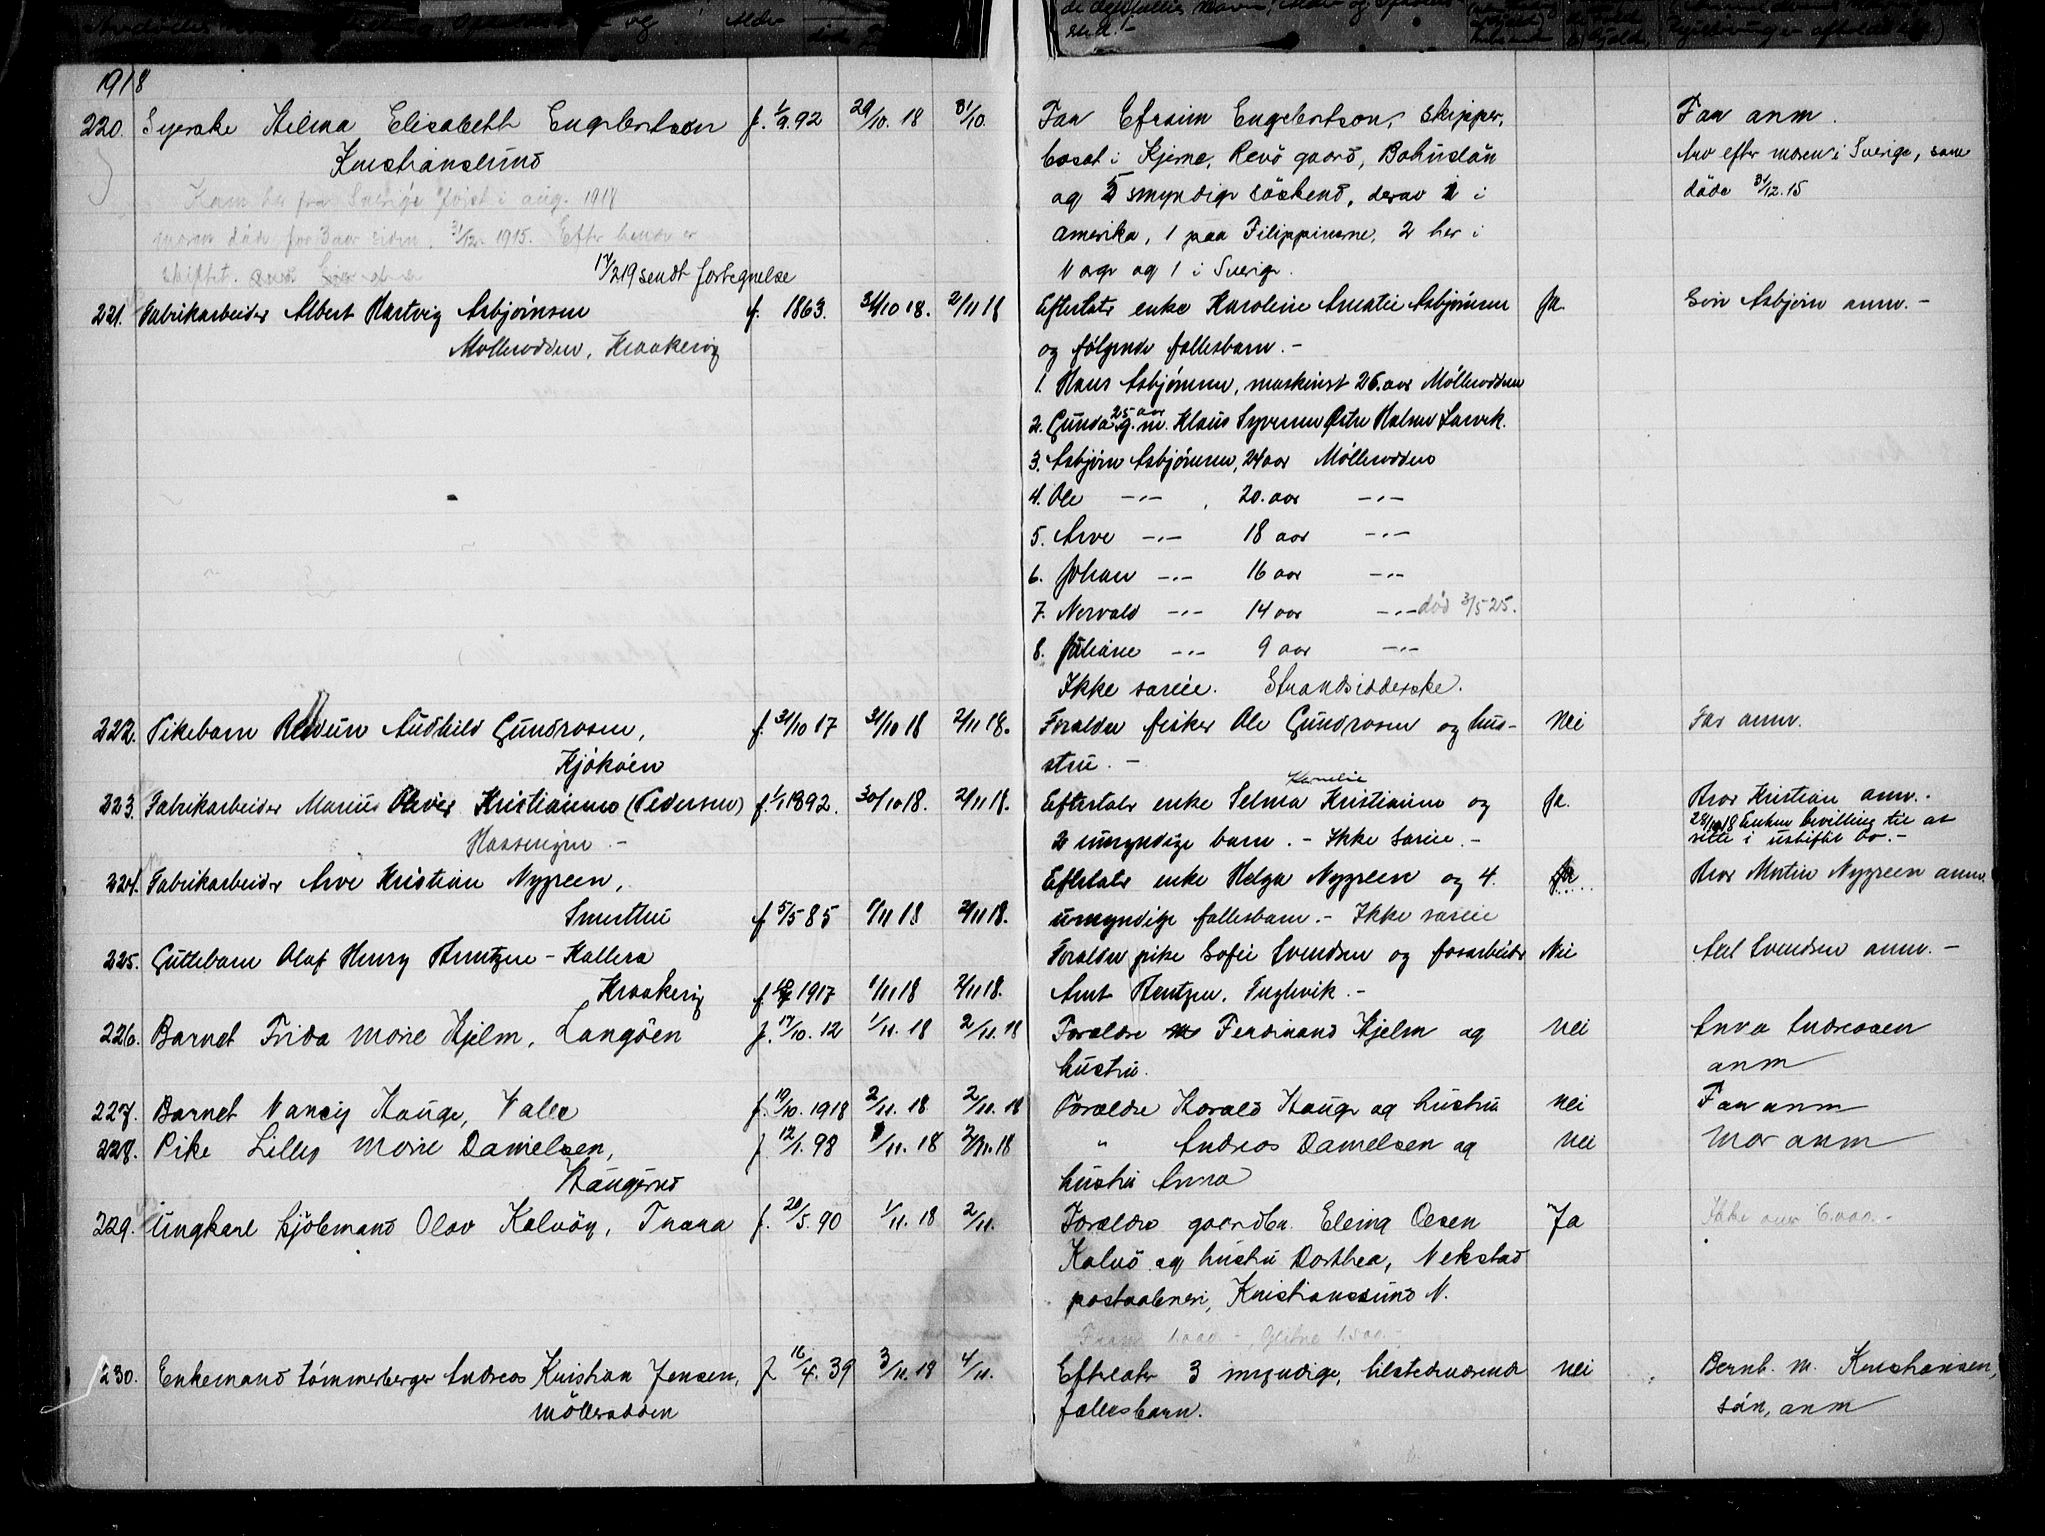 1918
220. Syerske Hilma Elisabeth Engelbertson f. 1/9.92 29/10.18 31/10. Far Efraim Engelbertson, skipper, Far anm.
Kristianslund bosat i Kjerne, Revö gaard, Bohuslän Arv efter moren i Sverige, som
Kom her fra Sverige först i aug. 1918 og 5 myndige söskend, derav 1 i döde 31/12.15
moren död for 3 aar siden, 31/12 1915. Efter henne er amerika, 1 paa Filippinerne, 2 her i
skiftet. 17/2 19 sendt fortegnelse Norge og 1 i Sverige.
221. Fabrikarbeider Albert Hartvig Asbjørnsen f. 1863. 31/10 18. 2/11 18 Efterlater enke Karoline Amalie Asbjörnsen Ja. Sön Asbjörn anm.-
Mölleroddern, Kraakeröy og følgende fellesbarn.-
1. Hans Asbjörnsen, maskinist 26. aar Mölleroddern
2. Gunda 25 aar g.m. Klaus Syversen Østre Halsen Larvik.
3. Asbjörn Asbjörnsen, 24 aar Mölleroddern
4. Ole -"- , 20. aar -"-
5. Arve -"- 18 aar -"-
6. Johan -"- 16 aar -"-
7. Norvald -"- 14 aar -"- död 3/5 25.
8. Juliane -"- 9 aar -"-
Ikke særeie. Strandsidderske.
222. Pikebarn Reidun Audhild Gundrosen, f. 31/10 17 31/10 18 2/11 18. Forældre fisker Ole Gundrosen og hus- Nei Far anm.
Kjøkøen stru.-
223. Fabrikarbeider Marius Oliver Kristiansen (Pedersen) f. 1/1 1892. 30/10 18. 2/11 18. Efterlater enke Selma Kornelie Kristiansen og Ja. Bror Kristian anm.-
Hassengen.- 2 umyndige barn.- Ikke særeie.- 28/11 18 Enken bevilling til at
sitte i uskiftet bo.-
224. Fabrikarbeider Arve Kristian Nygreen, Efterlater enke Helga Nygreen og 4. Ja Bror Martin Nygreen anm.
Smertu f 5/5 85 1/11 18 2/11 18. umyndige fellesbarn.- Ikke særeie
225. Guttebarn Olaf Henry Arntzen - Kallera Forældre pike Sofie Svendsen og forarbeider Nei Axel Svendsen anm.-
Kraakeröy f. 1917 1/11 18 2/11 18. Arnt Berntzen, Fuglevik.-
226. Barnet Frida Marie Hjelm, Langöen f. 17/10.12 1/11.18 2/11.18 Forældre Ferdinand Hjelm og Nei Anna Andreasen
hustru. anm
227. Barnet Nancy Hauge, Valle f. 19/10.1918 2/11.18 2/11.18 Forældre Harald Hauge og hustru Nei Far anm
228. Pike Lilly Marie Danielsen, f 12/1.98 1/11.18 2/11.18 " Andreas Danielsen og Nei Mor anm
Haugerud hustru Anna
229. Ungkarl sjömand Olav Kalvöy, Traaa f. 20/5.90 1/11.18 2/11. Forældre gaardbr. Eling Oesen Ja Ikke over 6.000.-
Kalvö og hustru Dorthea, Nekstad
postaabneri, Kristianssund N.
Fram 1.000.- Gjitne 1.500.-
230. Enkemand tømmerberger Andreas Kristian Jensen, f 16/4.39 3/11.18 4/11. Efterlater 3 myndige, tilstedeværende Nei Bernh. M. Kristiansen,
Mölleroddern fællesbarn. sön, anm